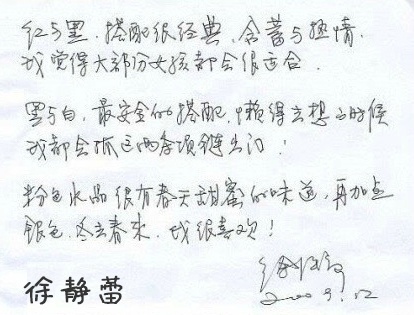 红与黑，搭配很经典，含蓄与热情，
我觉得大部份女孩都会很适合。
黑与白，最安全的搭配，懒得去想的时候
我都会抓这两条项链出门！
粉色水晶很有春天甜蜜的味道，再加点
银色，冬去春来，我很喜欢！
徐静蕾
徐静蕾